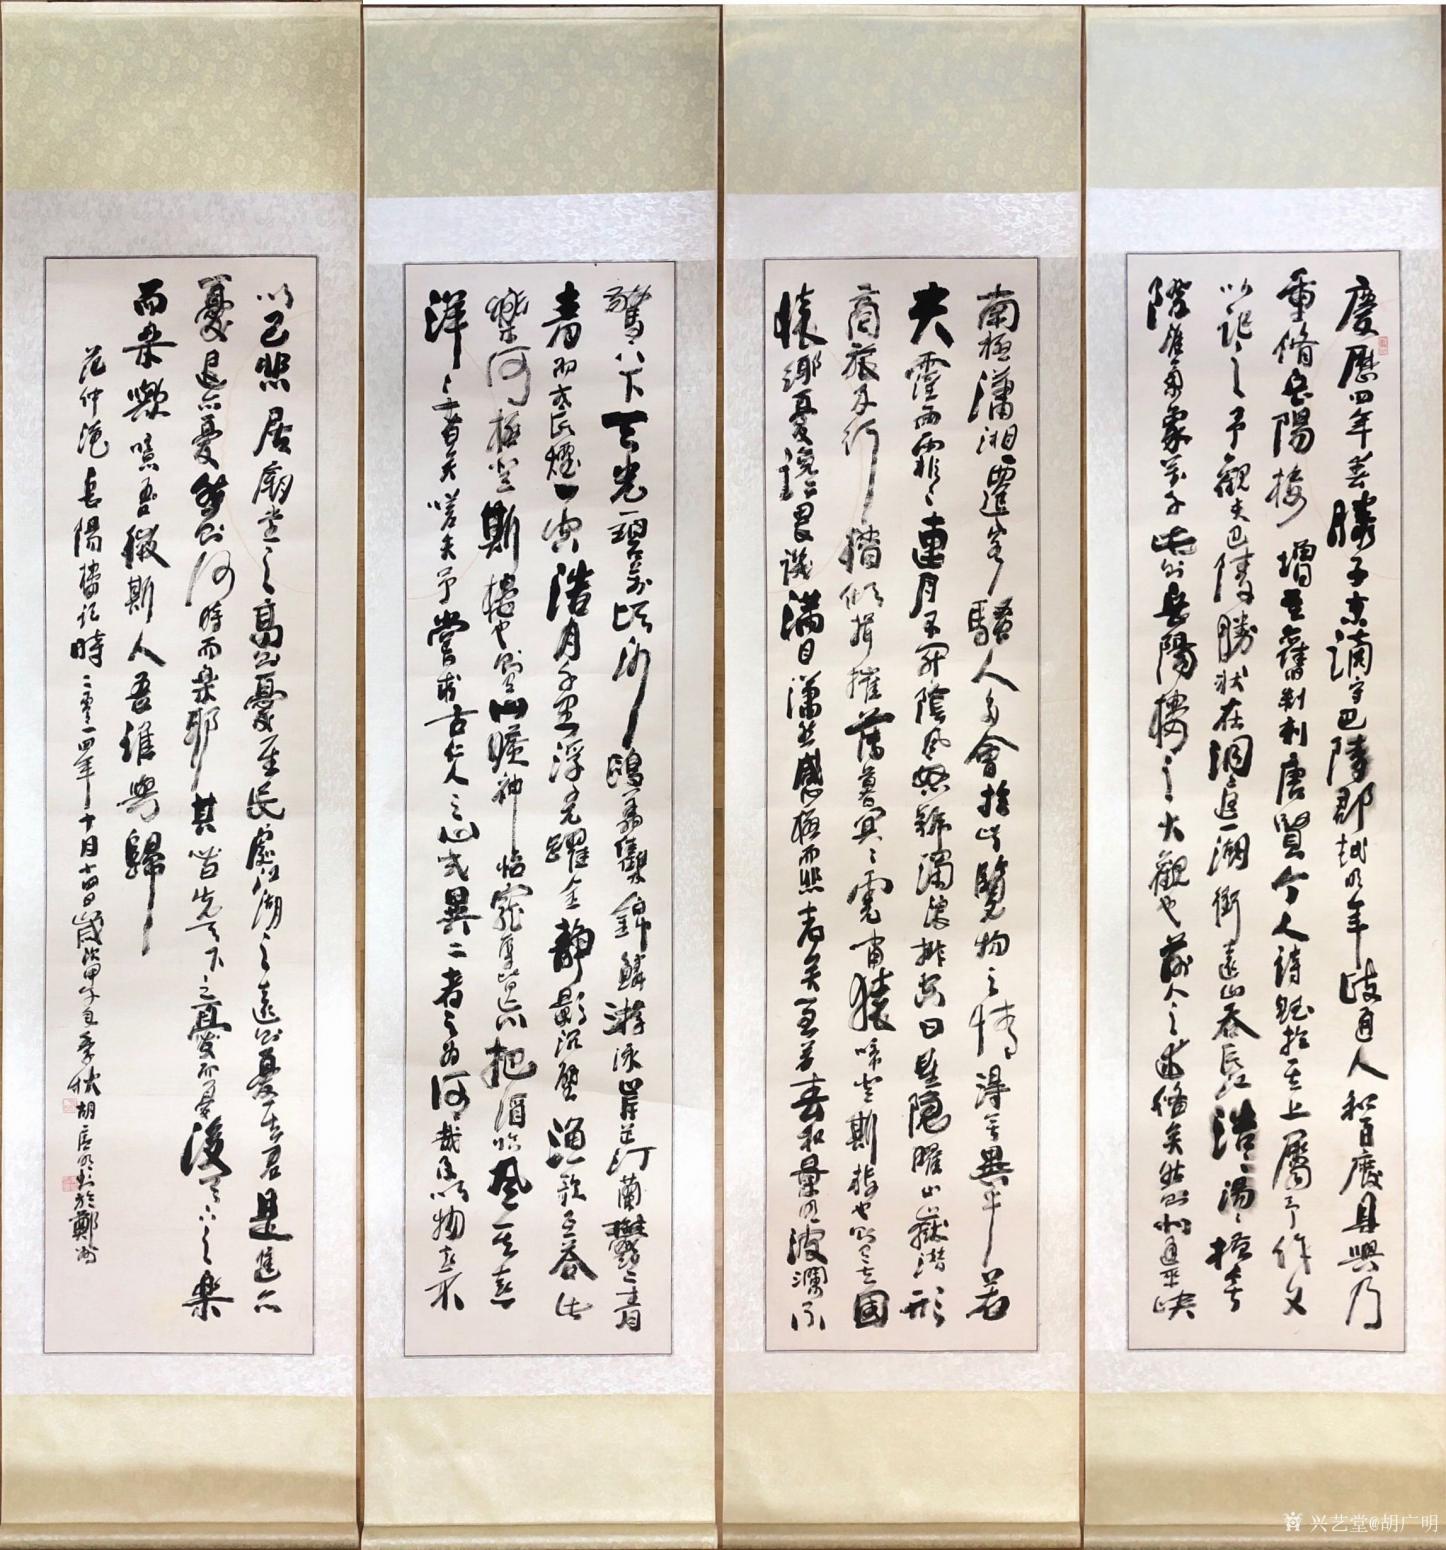 慶歷四年春滕子京謫守巴陵郡越明年政通人和百廢具興乃
重脩岳陽樓增其舊制刻唐賢今人詩賦於其上屬予作文
以記之予觀夫巴陵勝狀在洞庭一湖銜遠山吞長江浩浩湯湯橫無
際涯氣象萬千此則岳陽樓之大觀也前人之述備矣然則北通巫峽
南極瀟湘遷客騷人多會於此覽物之情得無異乎若
夫霪雨霏霏連月不開陰風怒號濁浪排空日星隱曜山嶽潛形
商旅不行檣傾楫摧薄暮冥冥虎嘯猿啼登斯樓也則有去國
懷鄉憂讒畏譏滿目蕭然感極而悲者矣至若春和景明波瀾不
驚上下天光一碧萬頃沙鷗翔集錦鱗游泳岸芷汀蘭鬱鬱青青
而或長煙一空皓月千里浮光躍金靜影沉璧漁歌互答此
樂何極登斯樓也則有心曠神怡寵辱皆忘把酒臨風其喜
洋洋者矣嗟夫予嘗求古仁人之心或異二者之為何哉不以物喜不
以己悲居廟堂之高則憂其民處江湖之遠則憂其君是進亦
憂退亦憂然則何時而樂耶其必曰先天下之憂而憂後天下之樂
而樂歟噫吾微斯人吾誰與歸
范仲淹岳陽樓記時二零一四年十月十四日歲次甲午年季秋胡廣明書於鄭州
兴艺堂@胡广明